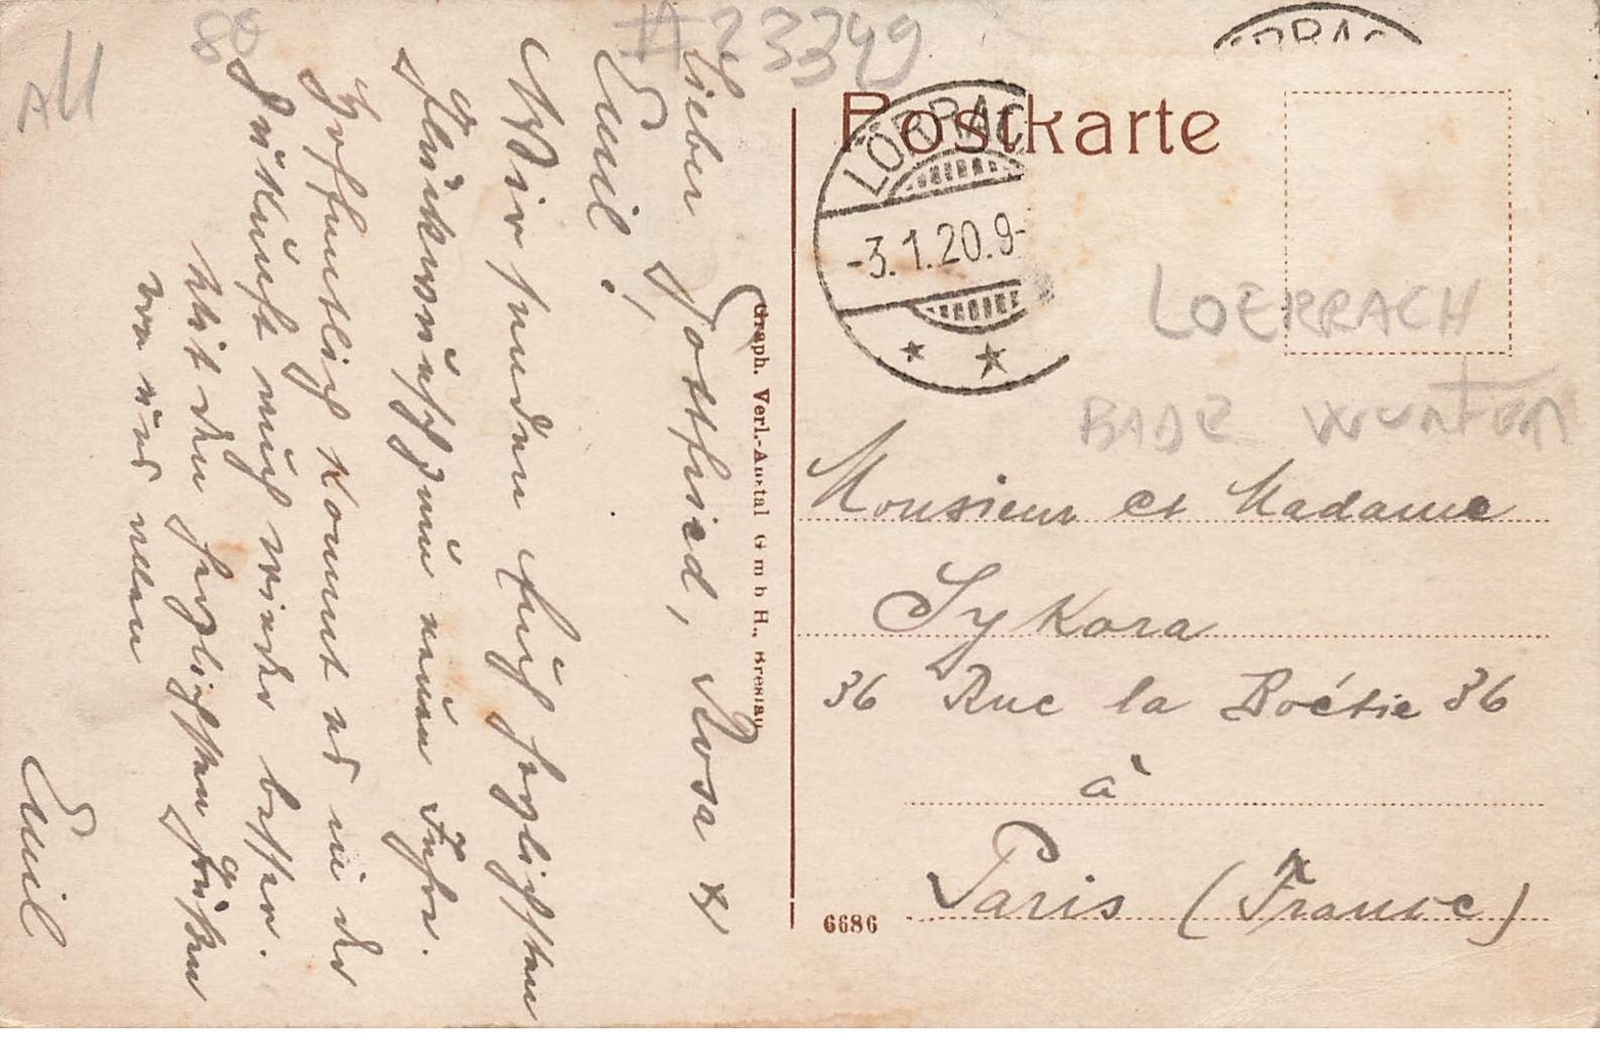 All
80
#23349
Lieber Gottfried, Rosa &
Emil!
Wir senden Euch herzlichsten
Glückwunsch zum neuen Jahre.
Hoffentlich kommt es in der
Zukunft auch wieder besser.
Mit den herzlichsten Grüßen
von uns allen
Emil
Graph. Verl.-Anstal G m b H., Breslau
Postkarte
LÖRRAC
-3.1.20.9-
LOERRACH
BADE
Monsieur et Madame
Sykora
36 Rue la Boétie 36
à
Paris (France)
6686